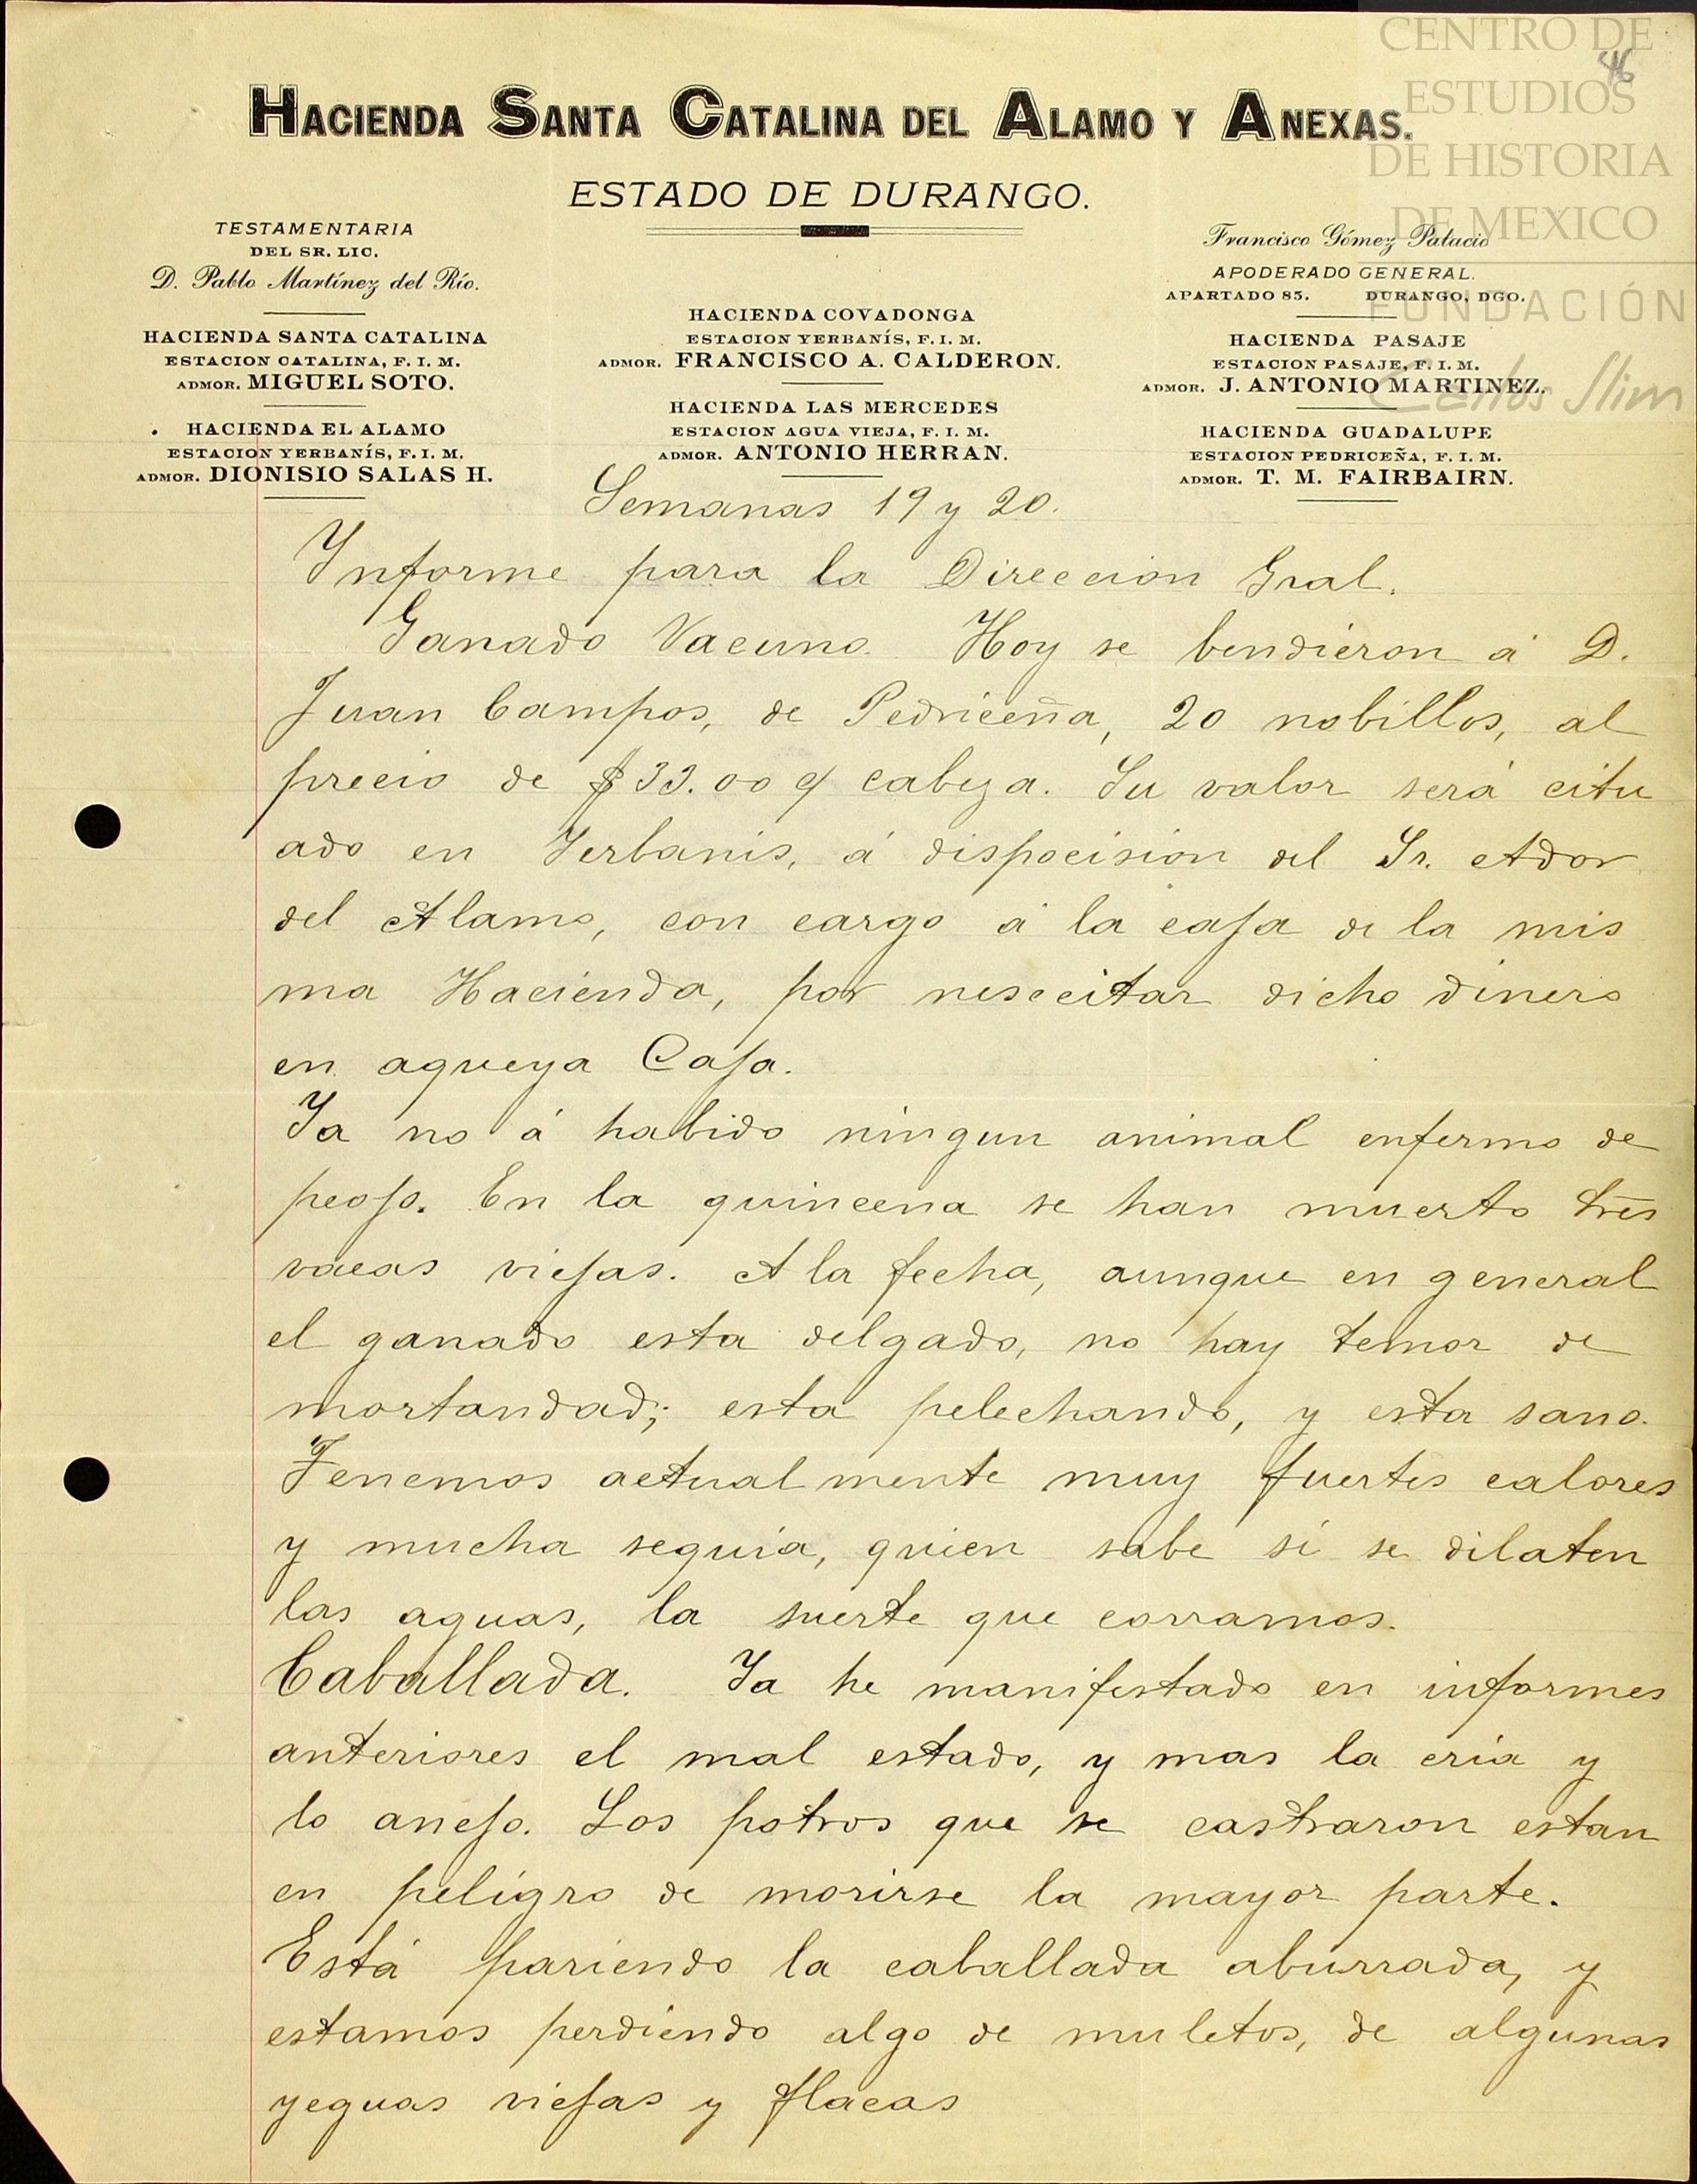 CENTRO DE
ESTUDIOS
DE HISTORIA
DE MEXICO
FUNDACIÓN
Carlos Slim
46
HACIENDA SANTA CATALINA DEL ALAMO Y ANEXAS.
ESTADO DE DURANGO.
TESTAMENTARIA
DEL SR. LIC.
D. Pablo Martínez del Río.
HACIENDA SANTA CATALINA
ESTACION CATALINA, F. I. M.
ADMOR. MIGUEL SOTO.
HACIENDA EL ALAMO
ESTACION YERBANÍS, F. I. M.
ADMOR. DIONISIO SALAS H.
HACIENDA COVADONGA
ESTACION YERBANÍS, F. I. M.
ADMOR. FRANCISCO A. CALDERON.
HACIENDA LAS MERCEDES
ESTACION AGUA VIEJA, F. I. M.
ADMOR. ANTONIO HERRAN.
Francisco Gómez Palacio
APODERADO GENERAL.
APARTADO 85. DURANGO, DGO.
HACIENDA PASAJE
ESTACION PASAJE, F. I. M.
ADMOR. J. ANTONIO MARTINEZ.
HACIENDA GUADALUPE
ESTACION PEDRICEÑA, F. I. M.
ADMOR. T. M. FAIRBAIRN.
Semanas 19 y 20.
Informe para la Direccion Gral.
Ganado Vacuno. Hoy se bendieron á D.
Juan Campos, de Pedriceña, 20 nobillos, al
precio de $33.00 c/ cabeza. Su valor será citu
ado en Yerbanis, á dispocision del Sr. Ador
del Alamo, con cargo á la caja de la mis
ma Hacienda, por nescecitar dicho dinero
en aqueya Caja.
Ya no á habido ningun animal enfermo de
peojo. En la quincena se han muerto tres
vacas viejas. A la fecha, aunque en general
el ganado esta delgado, no hay temor de
mortandad; esta pelechando, y esta sano.
Tenemos actualmente muy fuertes calores
y mucha sequia, quien sabe si se dilaten
las aguas, la suerte que corramos.
Caballada. Ya he manifestado en informes
anteriores el mal estado, y mas la cria y
lo anejo. Los potros que se castraron estan
en peligro de morirse la mayor parte.
Está pariendo la caballada aburrada, y
estamos perdiendo algo de muletos, de algunas
yeguas viejas y flacas